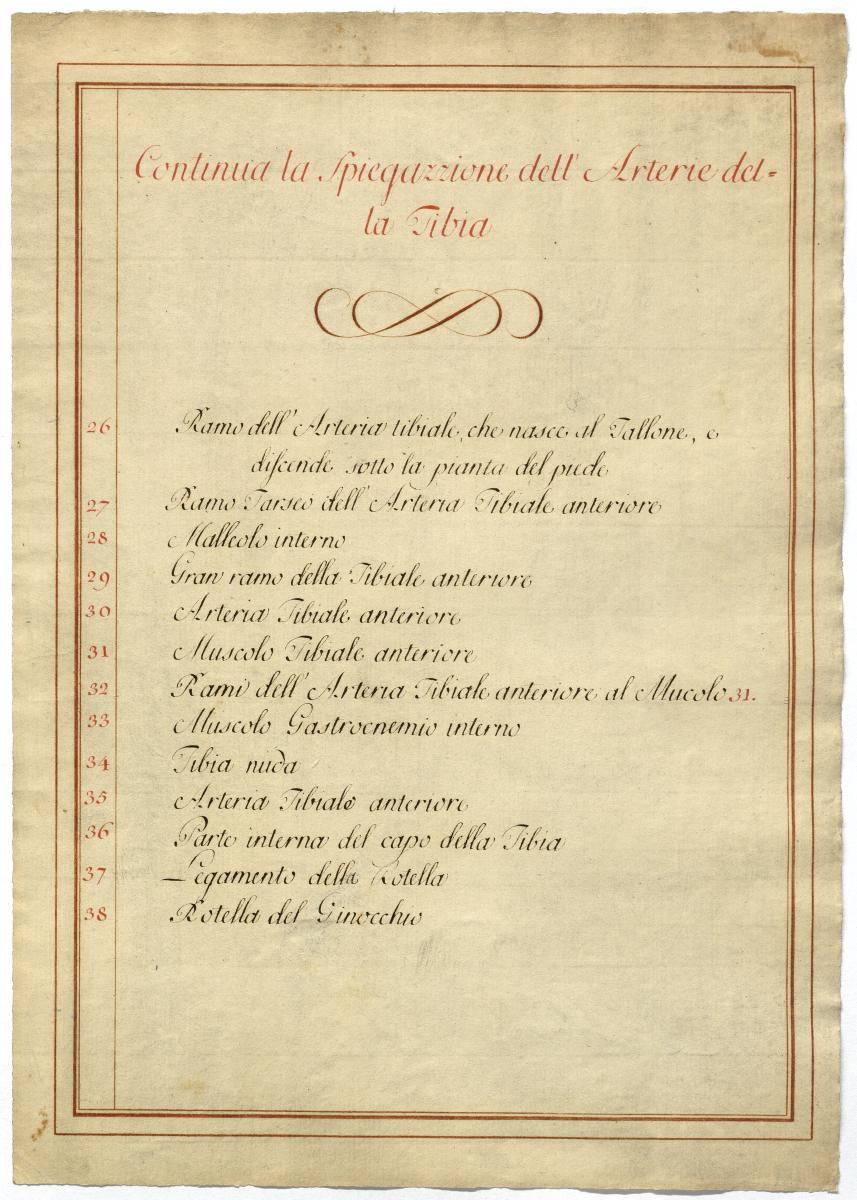 Continua la Spiegazzione dell' Arterie del=
la Tibia
26 Ramo dell' Arteria tibiale, che nasce al Tallone, e
discende sotto la pianta del piede
27 Ramo Tarseo dell' Arteria Tibiale anteriore
28 Malleolo interno
29 Gran ramo della Tibiale anteriore
30 Arteria Tibiale anteriore
31 Muscolo Tibiale anteriore
32 Rami dell' Arteria Tibiale anteriore al Mucolo 31.
33 Muscolo Gastrocnemio interno
34 Tibia nuda
35 Arteria Tibiale anteriore
36 Parte interna del capo della Tibia
37 Legamento della Rotella
38 Rotella del Ginocchio